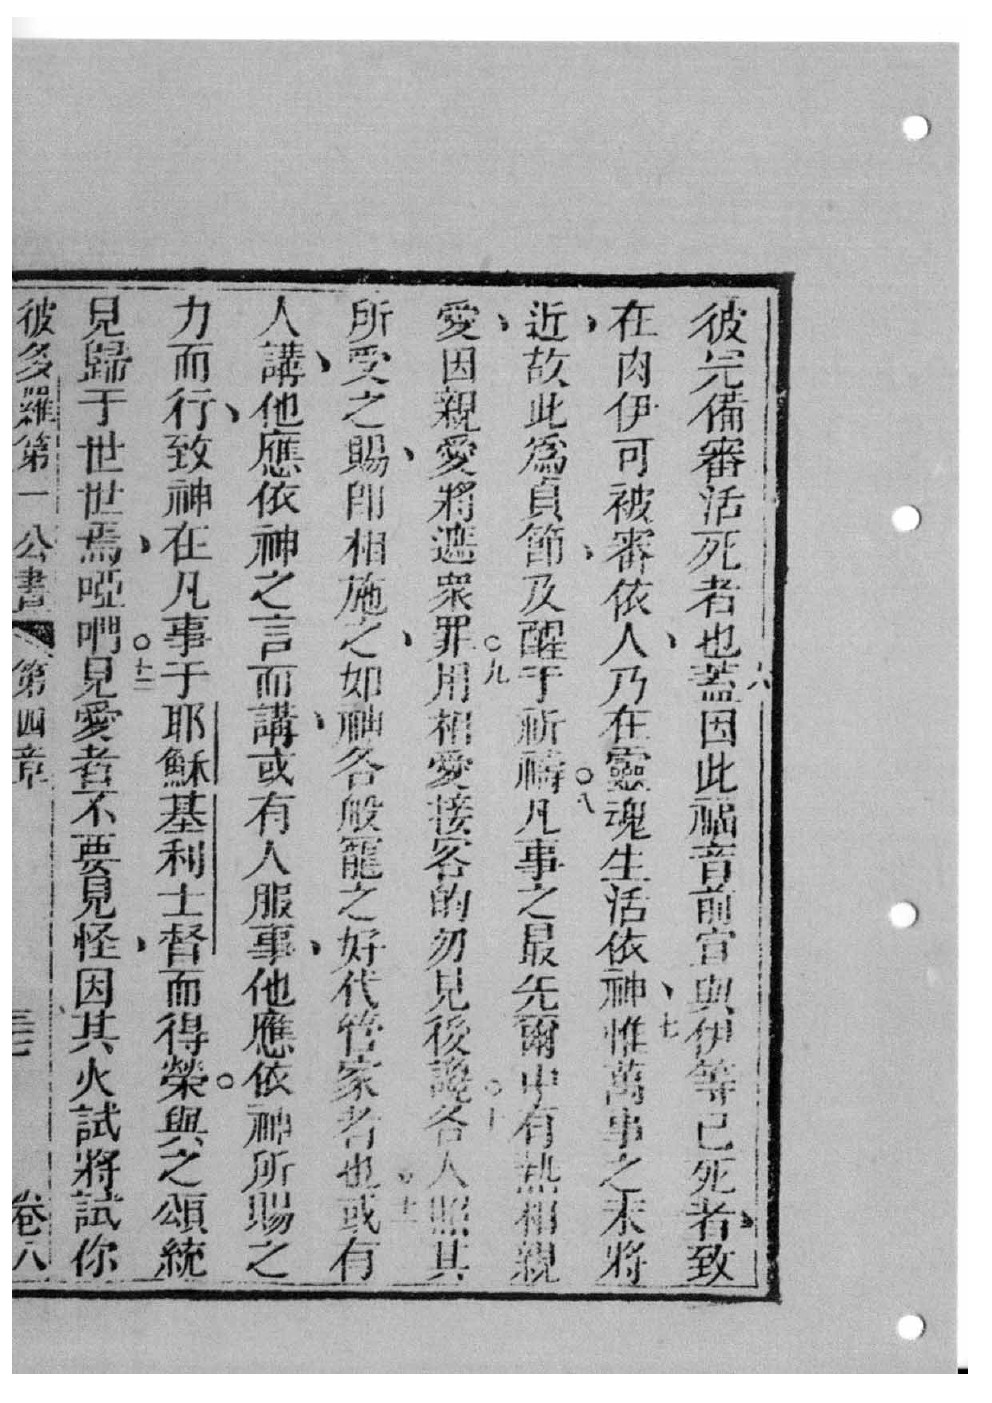 彼完備審活死者也六蓋因此福音前宣與伊等已死者、致
在肉伊可被審依人、乃在靈魂生活依神、七惟萬事之末將
近、故此爲貞節、及醒于祈禱。八凡事之最先爾中有熱相親
愛、因親愛將遮衆罪。九用相愛接客的勿見後讒。十各人照其
所受之賜、卽相施之、如神各般寵之好代管家者也。十一或有
人講、他應依神之言而講、或有人服事、他應依神所賜之
力而行、致神在凡事于耶穌基利士督而得榮。與之頌統
見歸于世世焉、啞們。十二見愛者不要見怪、因其火試將試你
彼多羅第一公書 第四章 三七 卷八